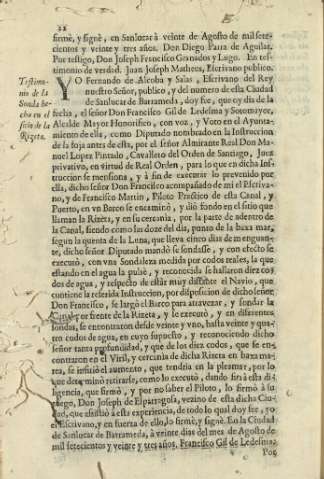 22
firmè, y signè, en Sanlucar à veinte de Agosto de mil sete-
cientos y veinte y tres años. Don Diego Parra de Aguilar.
Por testigo, Don Joseph Francisco Granados y Lugo. En tes-
timonio de verdad. Juan Joseph Matheos, Escrivano publico.
Testimo-
nio de la
Sonda he-
cha en el
sitio de la
Rizeta.
YO Fernando de Alcoba y Salas, Escrivano del Rey
nuestro Señor, publico, y del numero de esta Ciudad
de Sanlucar de Barrameda, doy fee, que oy dia de la
fecha, el señor Don Francisco Gil de Ledesma y Sotomayor,
Alcalde Mayor Honorifico, con voz, y Voto en el Ayunta-
miento de ella, como Diputado nombrado en la Instruccion
de la foja antes de esta, por el señor Almirante Real Don Ma-
nuel Lopez Pintado, Cavallero del Orden de Santiago, Juez
privativo, en virtud de Real Orden, para lo que en dicha Ins-
truccion se mensiona, y à fin de executar lo prevenido por
ella, dicho señor Don Francisco acompañado de mi el Escriva-
no, y de Francisco Martin, Piloto Practico de esta Canal, y
Puerto, en vn Barco se encaminò, y diò fondo en el sitio que
llaman la Rizeta, y en su cercania, por la parte de adentro de
la Canal, siendo como las doze del dia, punto de la baxa mar,
segun la quenta de la Luna, que lleva cinco dias de menguan-
te, dicho señor Diputado mandò se sondasse, y con efecto se
executò, con vna Sondaleza medida por codos reales, la que
estando en el agua la pulsè, y reconocida se hallaron diez co-
dos de agua, y respecto de estàr muy distante el Navio, que
contiene la referida Instruccion, por disposicion de dicho señor
Don Francisco, se largò el Barco para atravezar, y sondar la
Canal por frente de la Rizeta, y le executò, y en diferentes
sondas, se encontraron desde veinte y vno, hasta veinte y qua-
tro codos de agua, en cuyo supuesto, y reconociendo dicho
señor tanta profundidad, y que de los diez codos, que se en-
contraron en el Viril, y cercania de dicha Rizeta en baxa ma-
rea, se infiriò el aumento, que tendria en la pleamar, por lo
que determinò retirarse, como lo executò, dando fin à esta di-
ligencia, que firmò, y por no saber el Piloto, lo firmò à su
ruego, Don Joseph de Elparrogosa, vezino de esta dicha Ciu-
dad, que assistiò à esta experiencia, de todo lo qual doy fee, yo
el Escrivano, y en fuerza de ello, lo firmè, y signè. En la Ciudad
de Sanlucar de Barrameda, à veinte dias del mes de Agosto de
mil setecientos y veinte y tres años. Francisco Gil de Ledesma.
Por